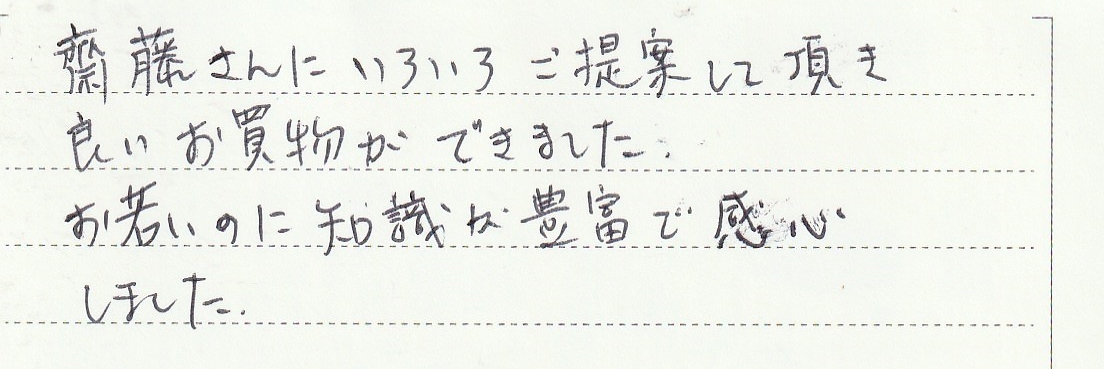 齋藤さんにいろいろご提案して頂き
良いお買物ができました.
お若いのに知識が豊富で感心
しました.